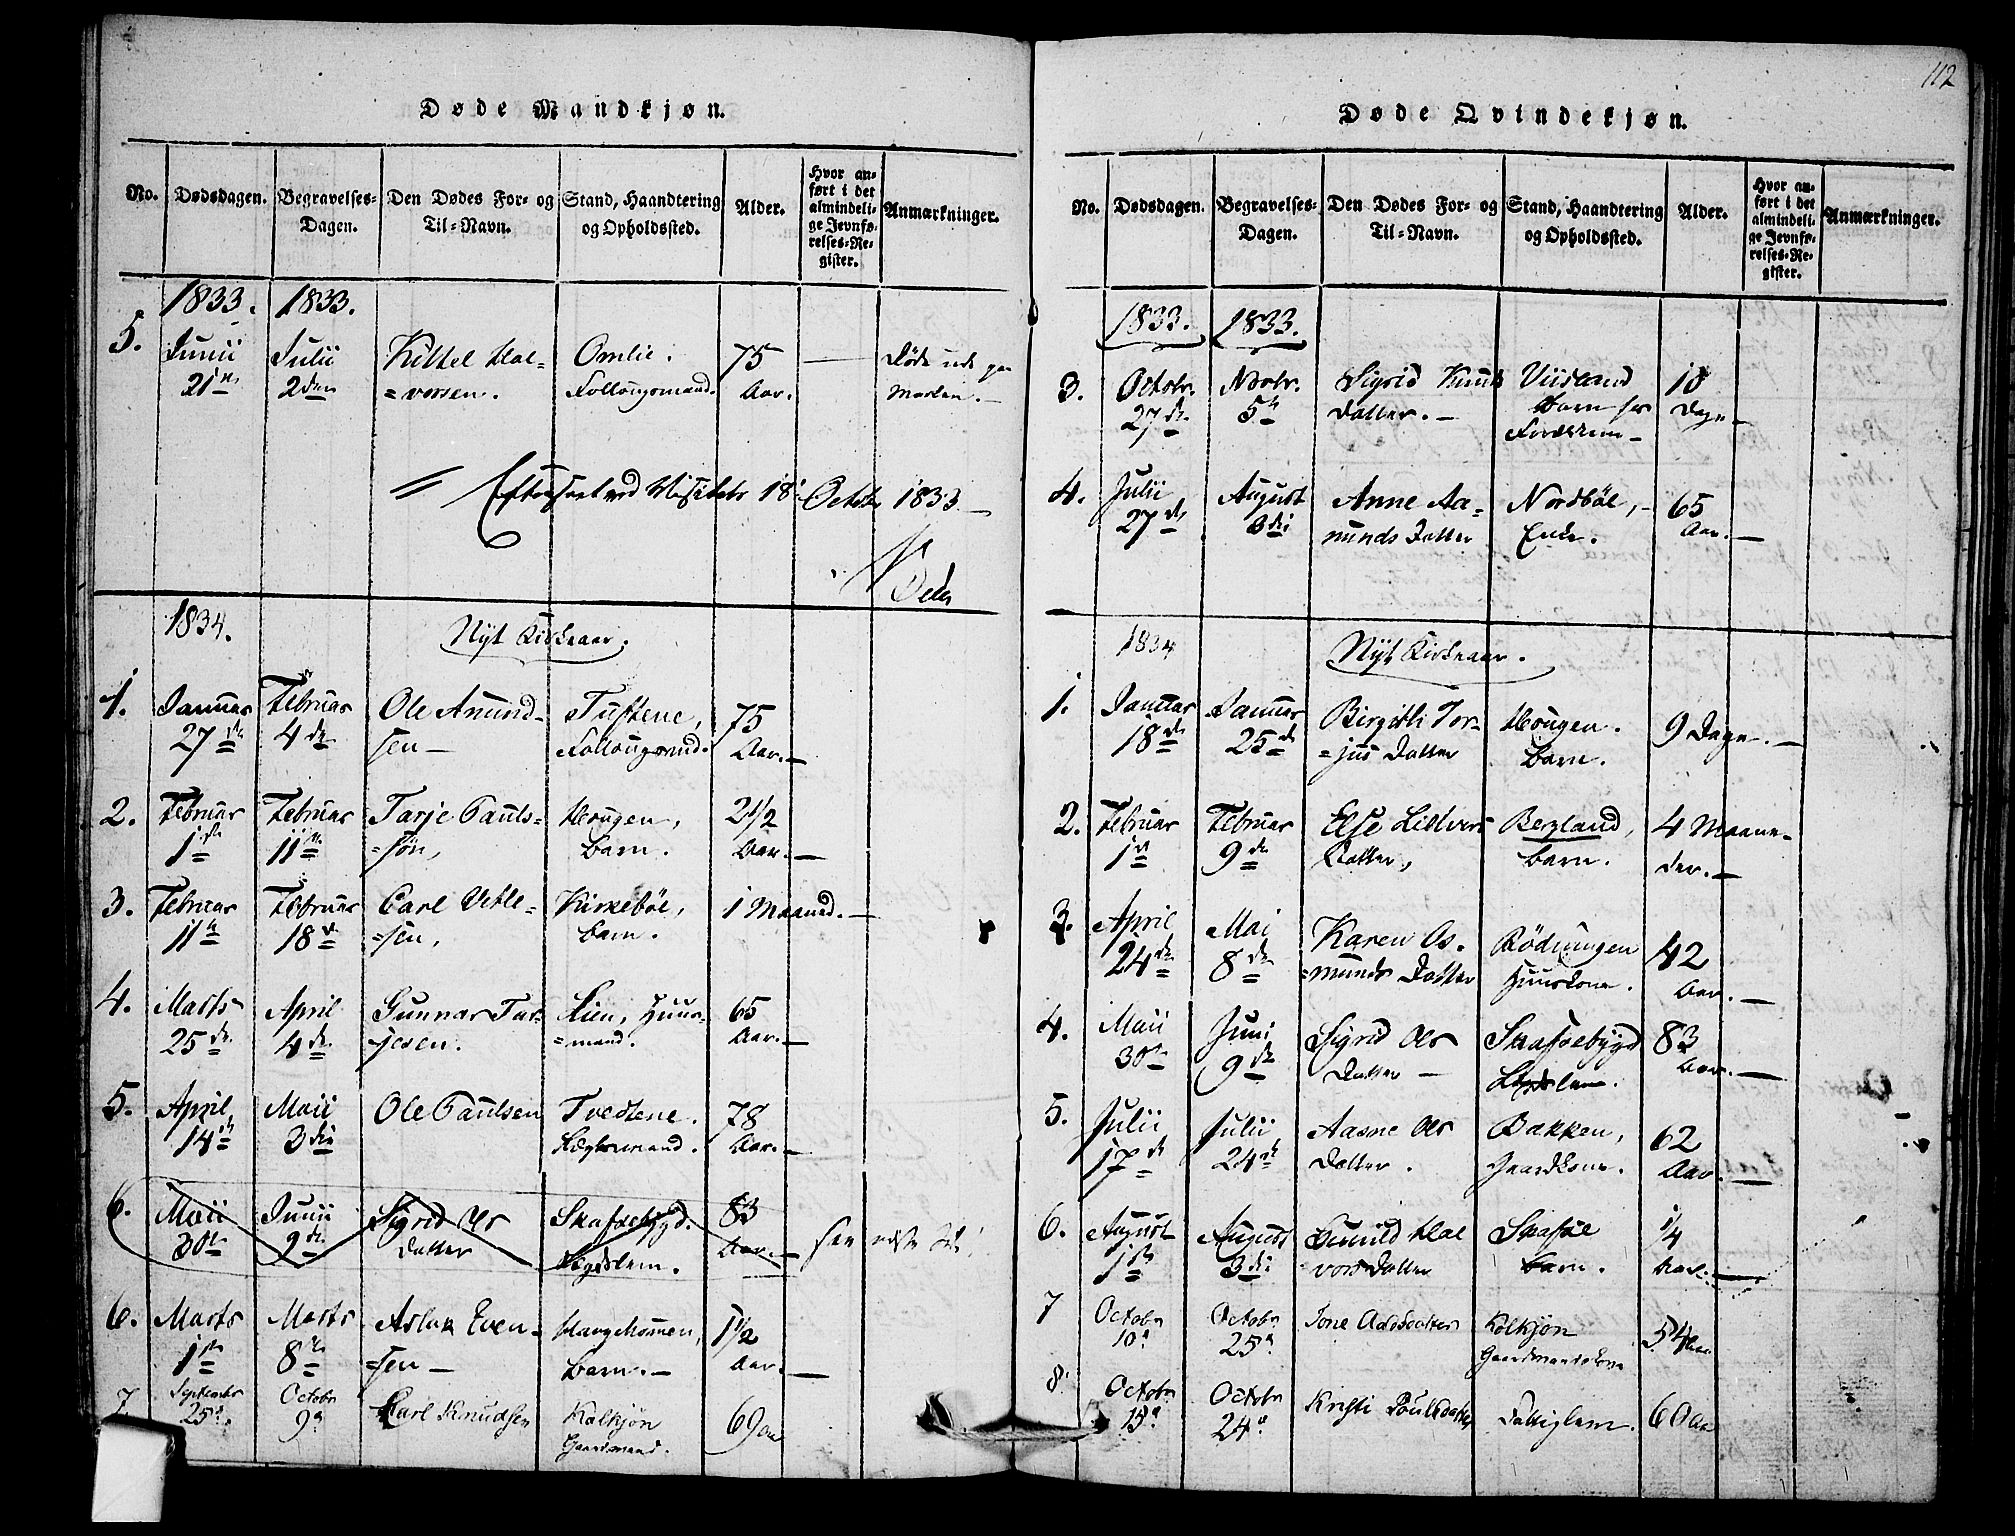 112
Døde Mandkjøn.
No.
Dødsdagen.
Begravelses-
Dagen.
Den Dødes For- og
Til-Navn.
Stand, Haandtering
og Opholdssted.
Alder.
Hvor an-
ført i det
almindeli-
ge Jevnfø-
relses-Re-
gister.
Anmærkninger.
1833. 1833.
5. Junii Julii Kittel Hal- Omlie. 75 Døde ude paa
21 2den =vorsen. Follougsmand. Aar. Marken.
Octobr 1833
1834. Nyt Kirkeaar.
1. Januar Februar Ole Anund- Tuftene, 75
27de 4de sen Follougsmd. Aar.
2. Februar Februar Tarje Pauls- Hougen, 2 1/2
1ste 11te =søn, barn. Aar.
3. Februar Februar Carl Vetle- Kirkebøe, 1 Maaned.
11te 18de =sen, barn.
4. Marts April Gunnar Tar- Lien, Huus- 65
25de 4de =jesen. =mand. Aar.
5. April Maii Ole Paulsen Tvedtene. 78
14de 3die Lægdsmand. Aar.
6. Maii Junii Sigrid Ols Skafsebygd. 83
30te 9de Datter Lægdslem. Aar. see
6. Marts Marts Aslak Even- Haugehomen, 1 1/2
1ste 8de =sen barn. Aar.
7 September Octobr Carl Knudsen Kolkjøn 69 aar
25de 9de Gaardmand.
Døde Qvindekjøn.
No.
Dødsdagen.
Begravelses-
Dagen.
Den Dødes For- og
Til-Navn.
Stand, Haandtering
og Opholdssted.
Alder.
Hvor an-
ført i det
almindeli-
ge Jevnfø-
relses-Re-
gister.
Anmærkninger.
1833. 1833.
3. Octobr. Novbr. Sigrid Knuts Viisland 10
27de 5te Datter. Barn Dage
4. Julii August Anne Aa- Nordbøe, 65
27de 3die munds Datter Enke. Aar.
1834 Nyt Kirkeaar.
1. Januar Januar Birgith Tor- Hougen. 9 Dage.
18de 25de =jus Datter barn.
2. Februar Februar Else Lidvers Bergland, 4 Maane-
1ste 9de Datter, barn. der.
3. April Mai Karen Os- Rødningen 42
24de 8de =munds Datter Huuskone. Aar.
4. Maii Juni Sigrid Ols Skafsebygd 83
30te 9de Datter Lægdslem. Aar.
5. Julii Julii Aasne Ols Bakken, 62
17de 24de Datter. Gaardkone. Aar
6. August August Gunild Hal Skafsøe 1/4
1ste 3die vors Datter barn. Aar.
7 Octobr Octobr Tone Kolkjøn 54 aar
10de 25de Gaardmandskone
8 Octobr Octobr Kristi Poulsdatter Fattiglem. 60 aar
15de 24de